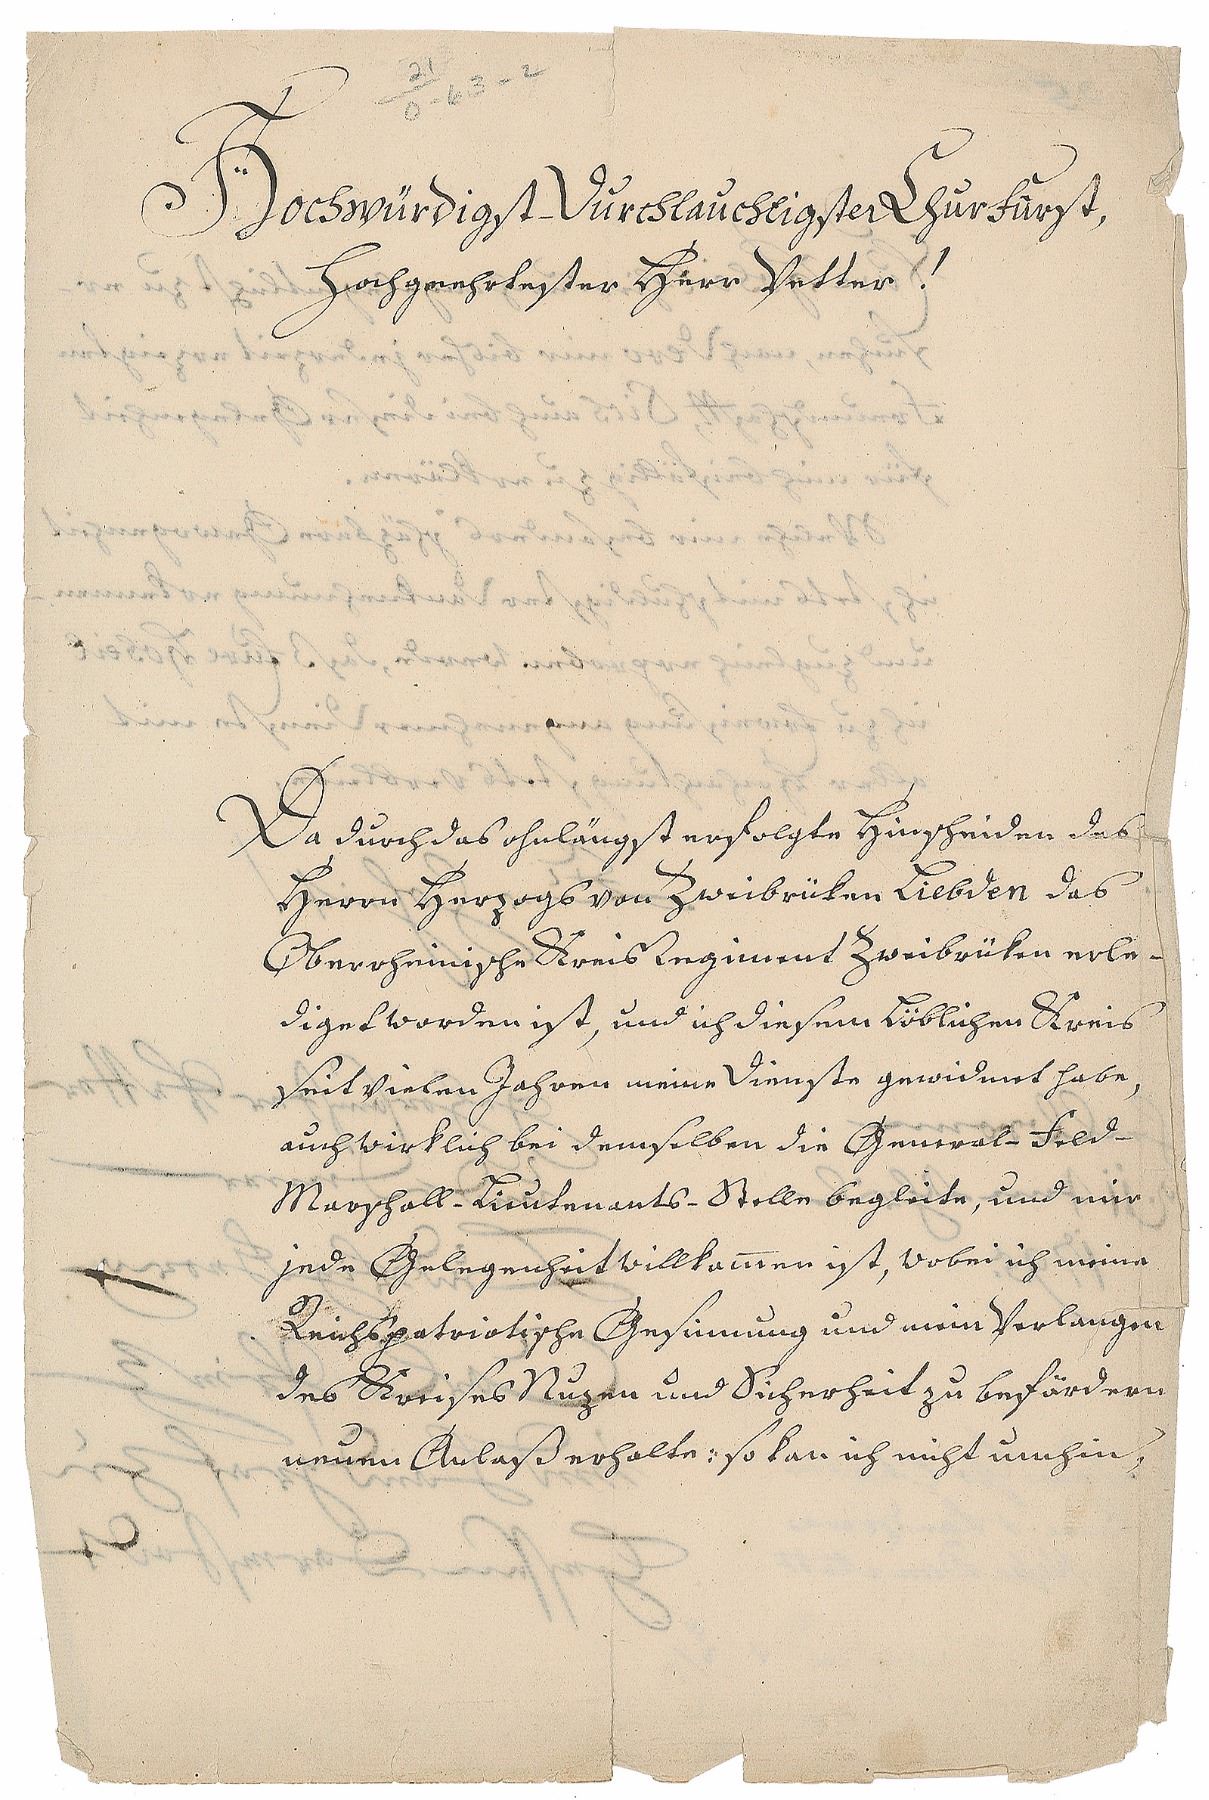 21/0-63-2
Hochwürdigst-Durchlauchtigster Churfürst,
Hochgeehrtester Herr Vetter!
Da durch das ohnlängst erfolgte Hinscheiden des
Herrn Herzogs von Zweibrüken Liebden das
Oberrheinische Kreis Regiment Zweibrüken erle-
diget worden ist, und ich diesem Löblichen Kreis
seit vielen Jahren meine Dienste gewidmet habe,
auch wirklich bei demselben die General-Feld-
Marschall-Lieutenants-Stelle begleite, und mir
jede Gelegenheit willkom̄en ist, wobei ich meine
Reichspatriotische Gesinnung und mein Verlangen
des Kreises Nuzen und Sicherheit zu befördern
neuen Anlaß erhalte: so kan ich nicht umhin,